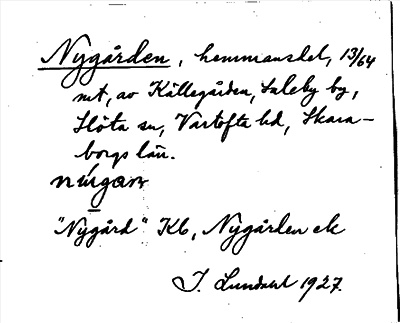 Nygården, hemmansdel, 13/64
mt, av Källegården, Saleby by,
Slöta sn, Vartofta hd, Skara-
borgs län.
"Nygård" Kb, Nygården ek
J. Lundahl 1927.